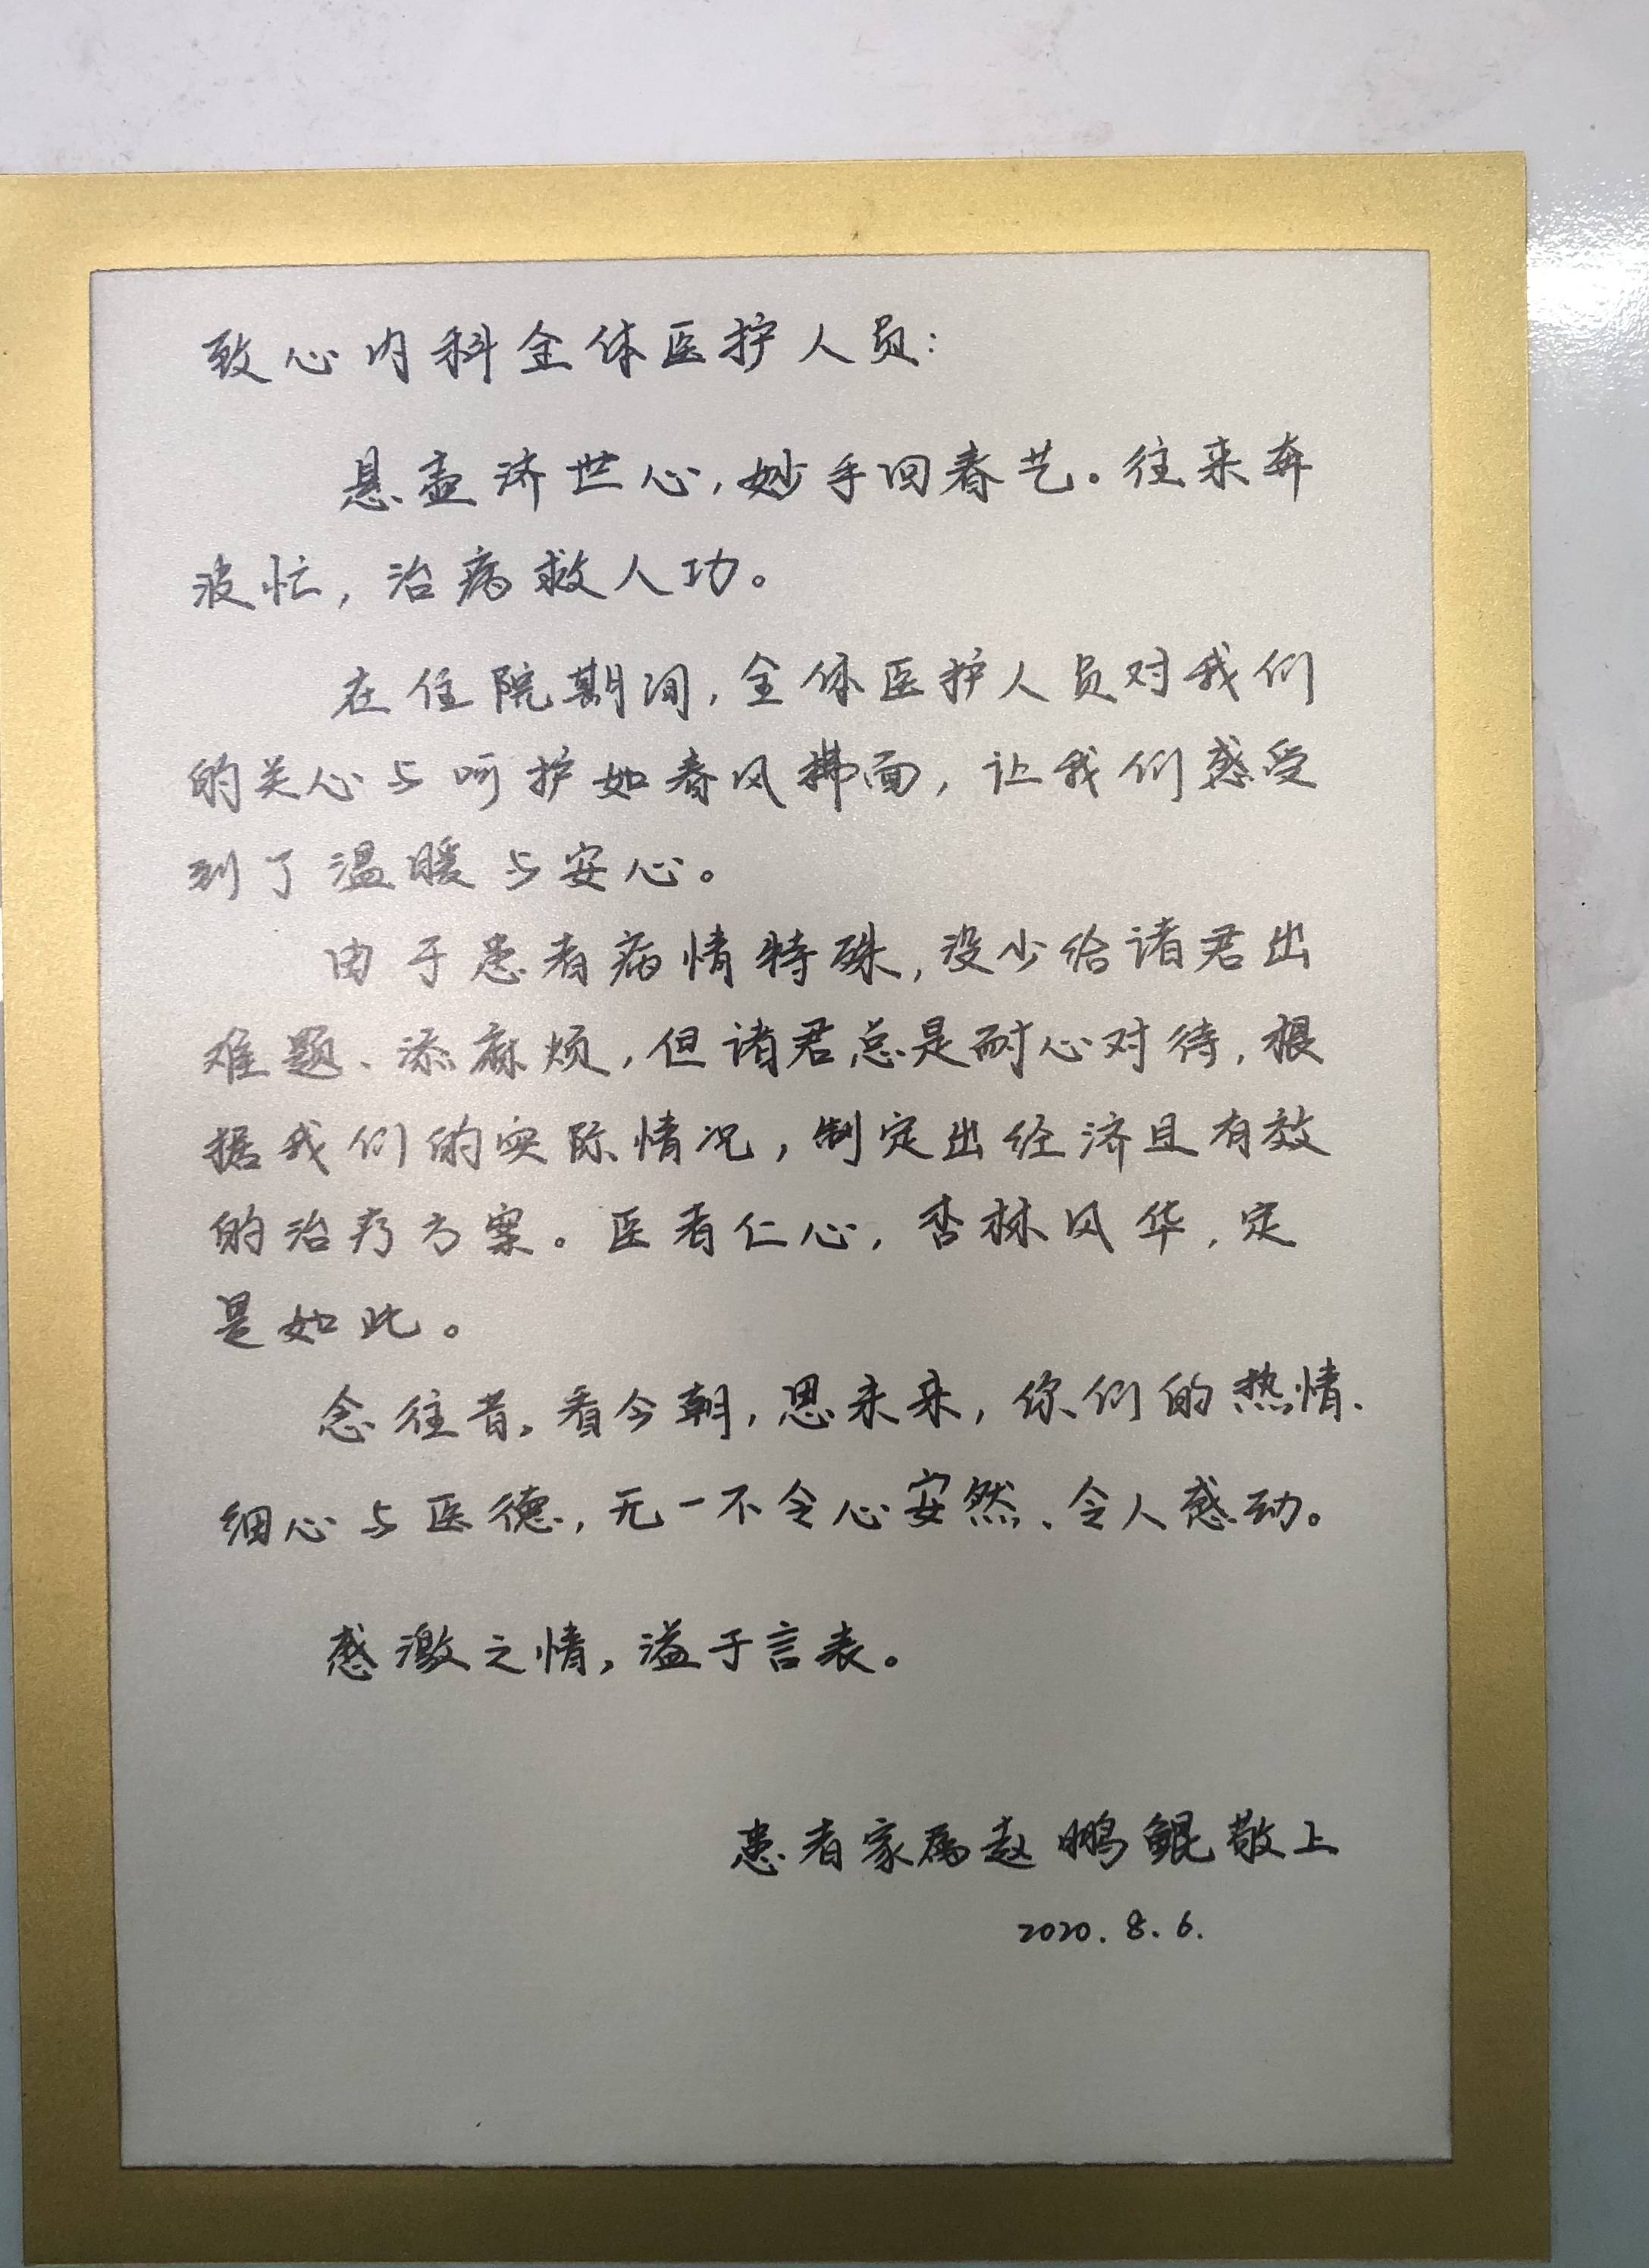 致心内科全体医护人员:
悬壶济世心,妙手回春艺。往来奔
波忙,治病救人功。
在住院期间,全体医护人员对我们
的关心与呵护如春风拂面,让我们感受
到了温暖与安心。
由于患者病情特殊,没少给诸君出
难题、添麻烦,但诸君总是耐心对待,根
据我们的实际情况,制定出经济且有效
的治疗方案。医者仁心,杏林风华,定
是如此。
念往昔,看今朝,思未来,你们的热情、
细心与医德,无一不令心安然、令人感动。
感激之情,溢于言表。
患者家属赵鹏鲲敬上
2020.8.6.